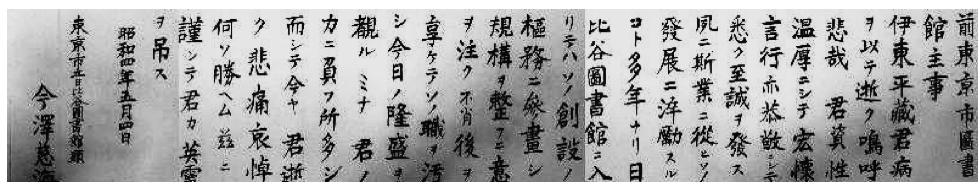 前東京市圖書
館主事
伊東平藏君病
ヲ以テ逝ク嗚呼
悲哉 君資性
温厚ニシテ宏懐
言行亦恭敬ニシテ
悉ク至誠ヲ發ス
夙ニ斯業ニ從ヒソノ
發展ニ淬勵スル
コト多年ナリ日
比谷圖書館ニ入
リテハソノ創設ノ
樞務ニ參畫シ
規構ヲ整フニ意
ヲ注ク不肖後ヲ
享ケテソノ職ヲ汚
シ今日ノ隆盛ヲ
觀ルミナ 君ノ
力ニ負フ所多シ
而シテ今ヤ 君逝
ク悲痛哀悼
何ソ勝ヘム茲ニ
謹ンテ君カ英靈
ヲ吊ス
昭和四年五月四日
東京市立日比谷圖書館頭
今澤慈海